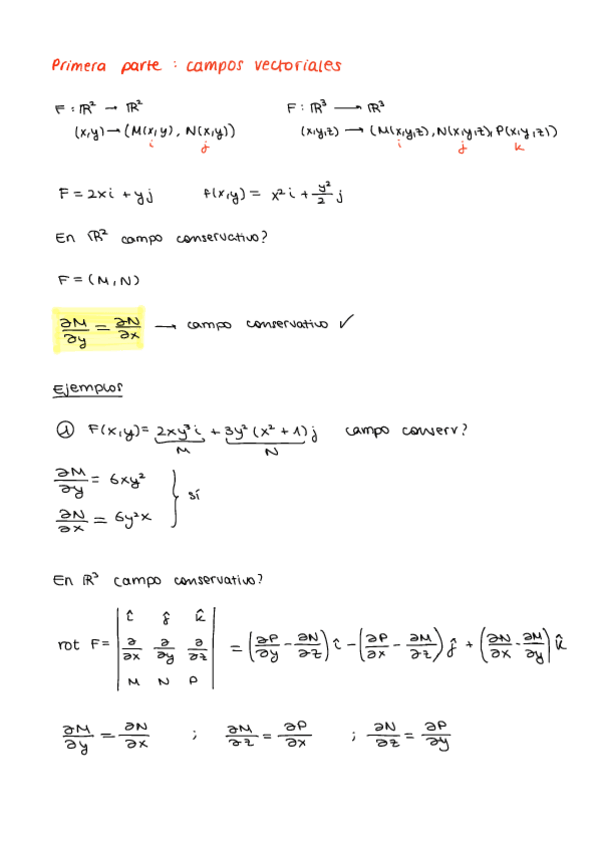 Primera parte : campos vectoriales
F : ℝ² → ℝ² F : ℝ³ → ℝ³
(x,y) → (M(x,y), N(x,y)) (x,y,z) → (M(x,y,z), N(x,y,z), P(x,y,z))
i j i j k
F = 2xi + yj f(x,y) = x²i + y²/2 j
En ℝ² campo conservativo?
F = (M, N)
∂M/∂y = ∂N/∂x → campo conservativo ✓
Ejemplos
① F(x,y) = 2xy³i + 3y²(x² + 1)j campo conserv?
M N
∂M/∂y = 6xy²
∂N/∂x = 6y²x } sí
En ℝ³ campo conservativo?
rot F = | î ĵ k̂ |
| ∂/∂x ∂/∂y ∂/∂z | = (∂P/∂y - ∂N/∂z) î - (∂P/∂x - ∂M/∂z) ĵ + (∂N/∂x - ∂M/∂y) k̂
| M N P |
∂M/∂y = ∂N/∂x ; ∂M/∂z = ∂P/∂x ; ∂N/∂z = ∂P/∂y